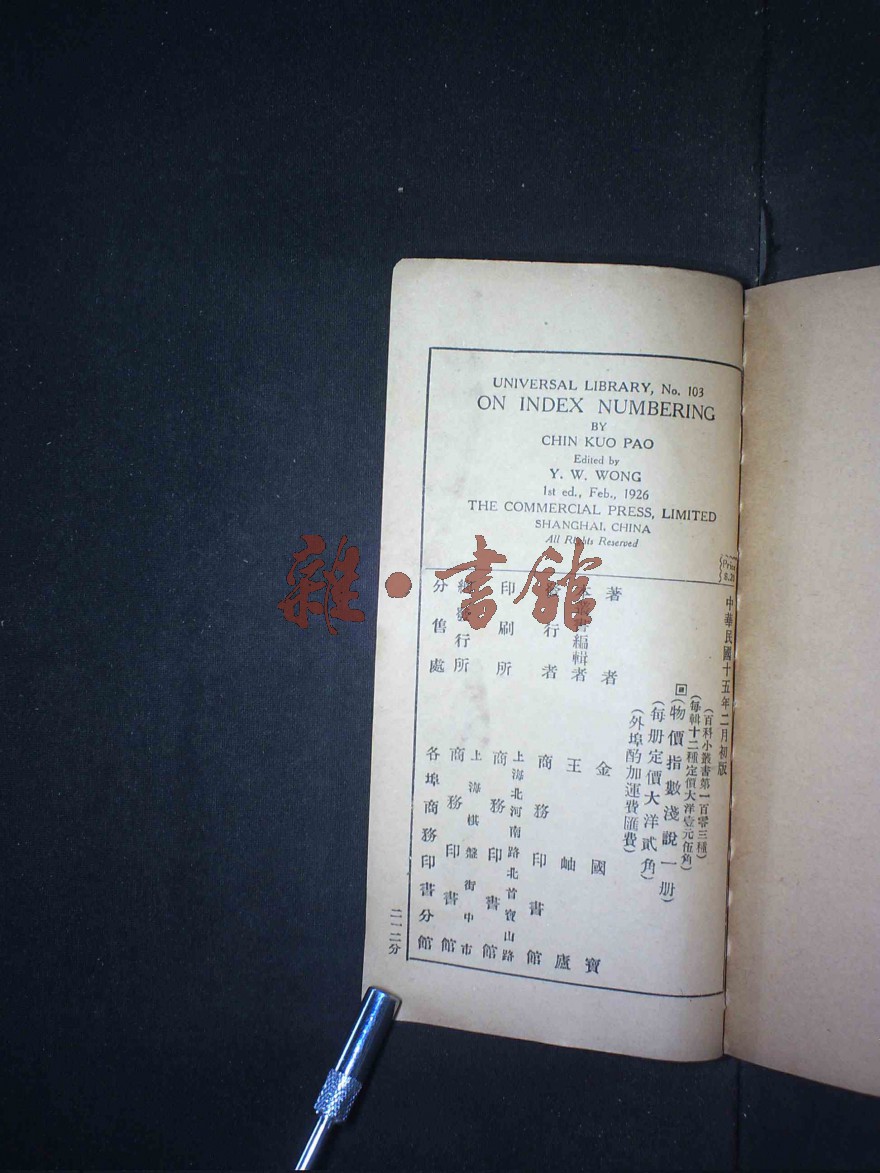 UNIVERSAL LIBRARY, No. 103
ON INDEX NUMBERING
BY
CHIN KUO PAO
Edited by
Y. W. WONG
1st ed., Feb., 1926
THE COMMERCIAL PRESS, LIMITED
SHANGHAI, CHINA
All Rights Reserved
中華民國十五年二月初版
(百科小叢書第一百零三種)
(每輯十二種定價大洋壹元伍角)
(物價指數淺說一册)
(每册定價大洋貳角)
(外埠酌加運費匯費)
著者 金國寶
編輯者 王岫廬
行者 商務印書館
印刷所 上海北河南路北首寶山路 商務印書館
行所 上海棋盤街中市 商務印書館
分售處 各埠商務印書分館
二一二分
雜·書館